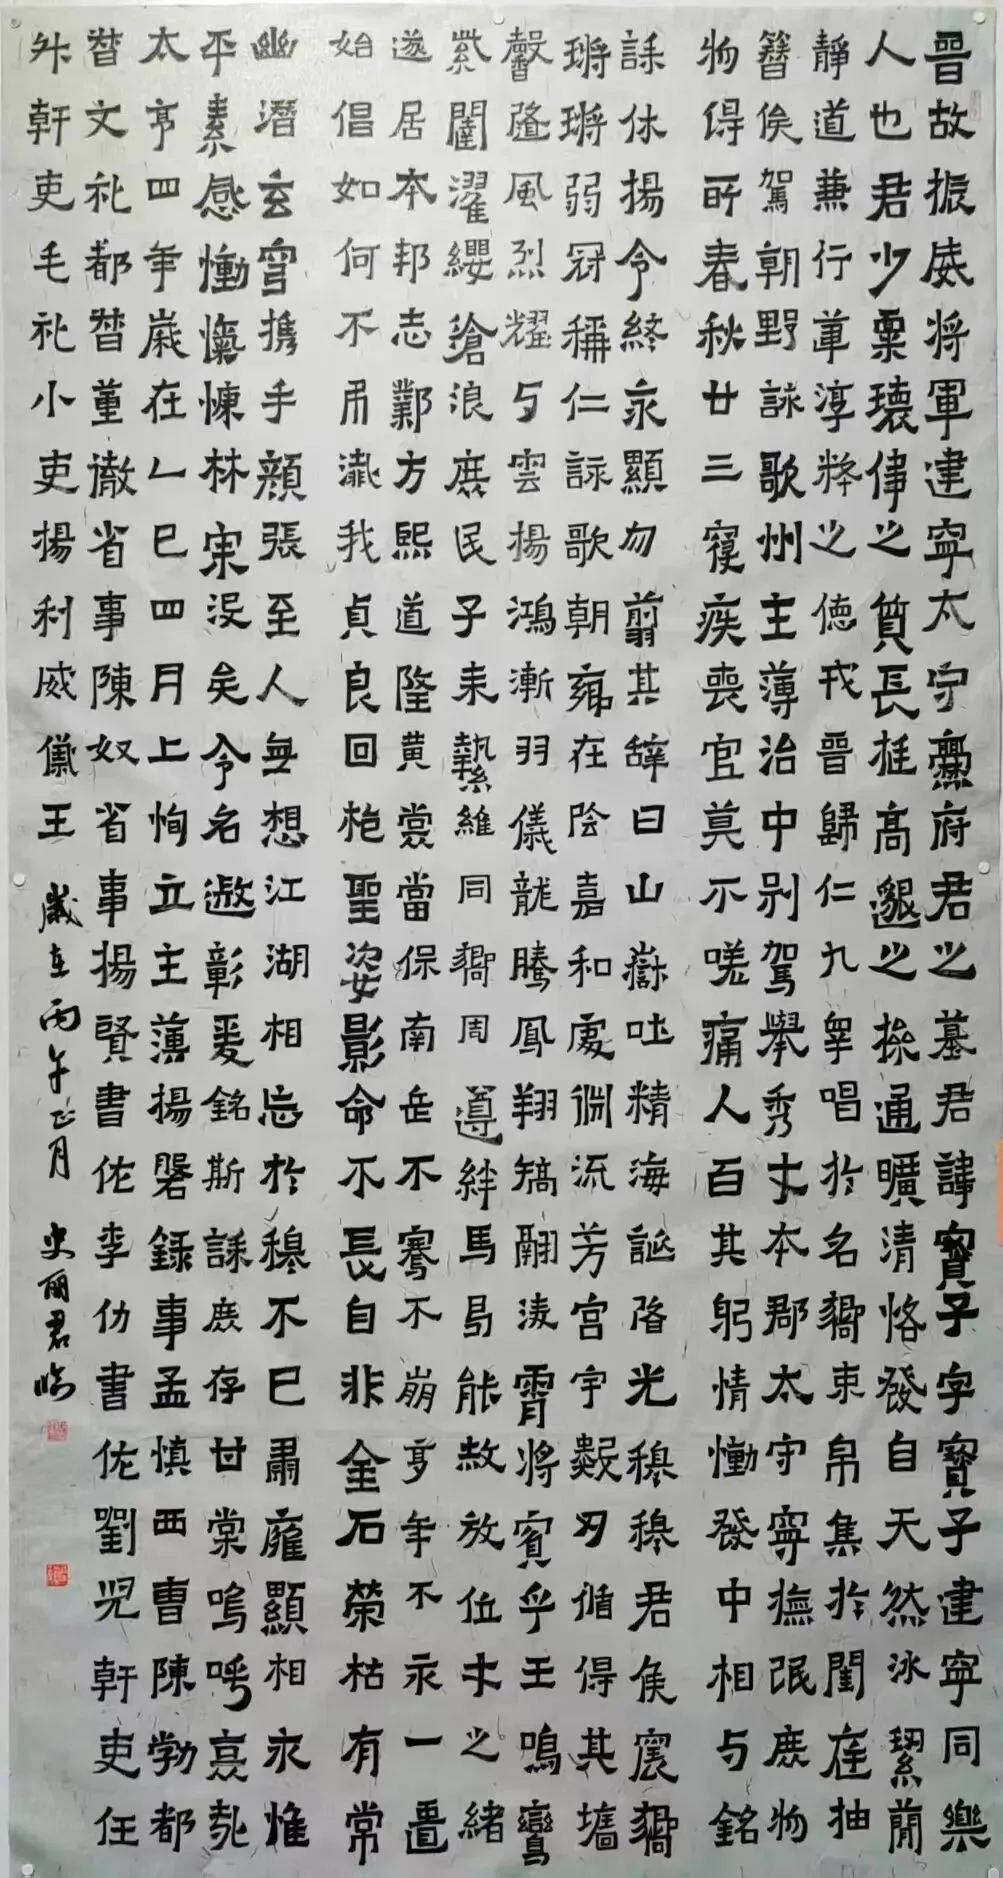 晉故振威将軍建寧太守爨府君之墓君諱寶子字寶子建寧同樂
人也君少稟瓌偉之質長挺高邈之操通曠清恪發自天然冰絜蕳
靜道兼行葦淳粹之德戎晉歸仁九皋唱於名嚮束帛集於閨庭抽
簪俟駕朝野詠歌州主薄治中别駕舉秀才本郡太守寧撫氓庶物
物得所春秋廿三寢疾喪官莫不嗟痛人百其躬情慟發中相与銘
誄休揚令終永顯勿翦其辭曰山嶽吐精海誕陼光穆穆君侯震嚮
鏘鏘弱冠稱仁詠歌朝鄉在陰嘉和處淵流芳宮宇數刃循得其墙
馨隆風烈耀与雲揚鴻漸羽儀龍騰鳳翔矯翮凌霄将賓乎王鳴鸞
紫闥濯纓滄浪庶民子来縶維同嚮周遵絆馬曷能赦放位才之緒
遂居本邦志鄴方熙道隆黄裳當保南岳不騫不崩享年不永一匱
始倡如何不弔殱我貞良回抱聖姿影命不長自非金石榮枯有常
幽潛玄穹携手顏張至人無想江湖相忘於穆不已肅雍顯相永惟
平素感慟愾悚林宗没矣令名遐彰爰銘斯誄庶存甘棠嗚呼哀哉
太亨四年歲在乙巳四月上恂立主薄揚磐録事孟慎西曹陳勃都
督文礼都督董徹省事陳奴省事揚賢書佐李仂書佐劉兒軒吏任
升軒吏毛礼小吏揚利威儀王
歲在丙午正月 史丽君临